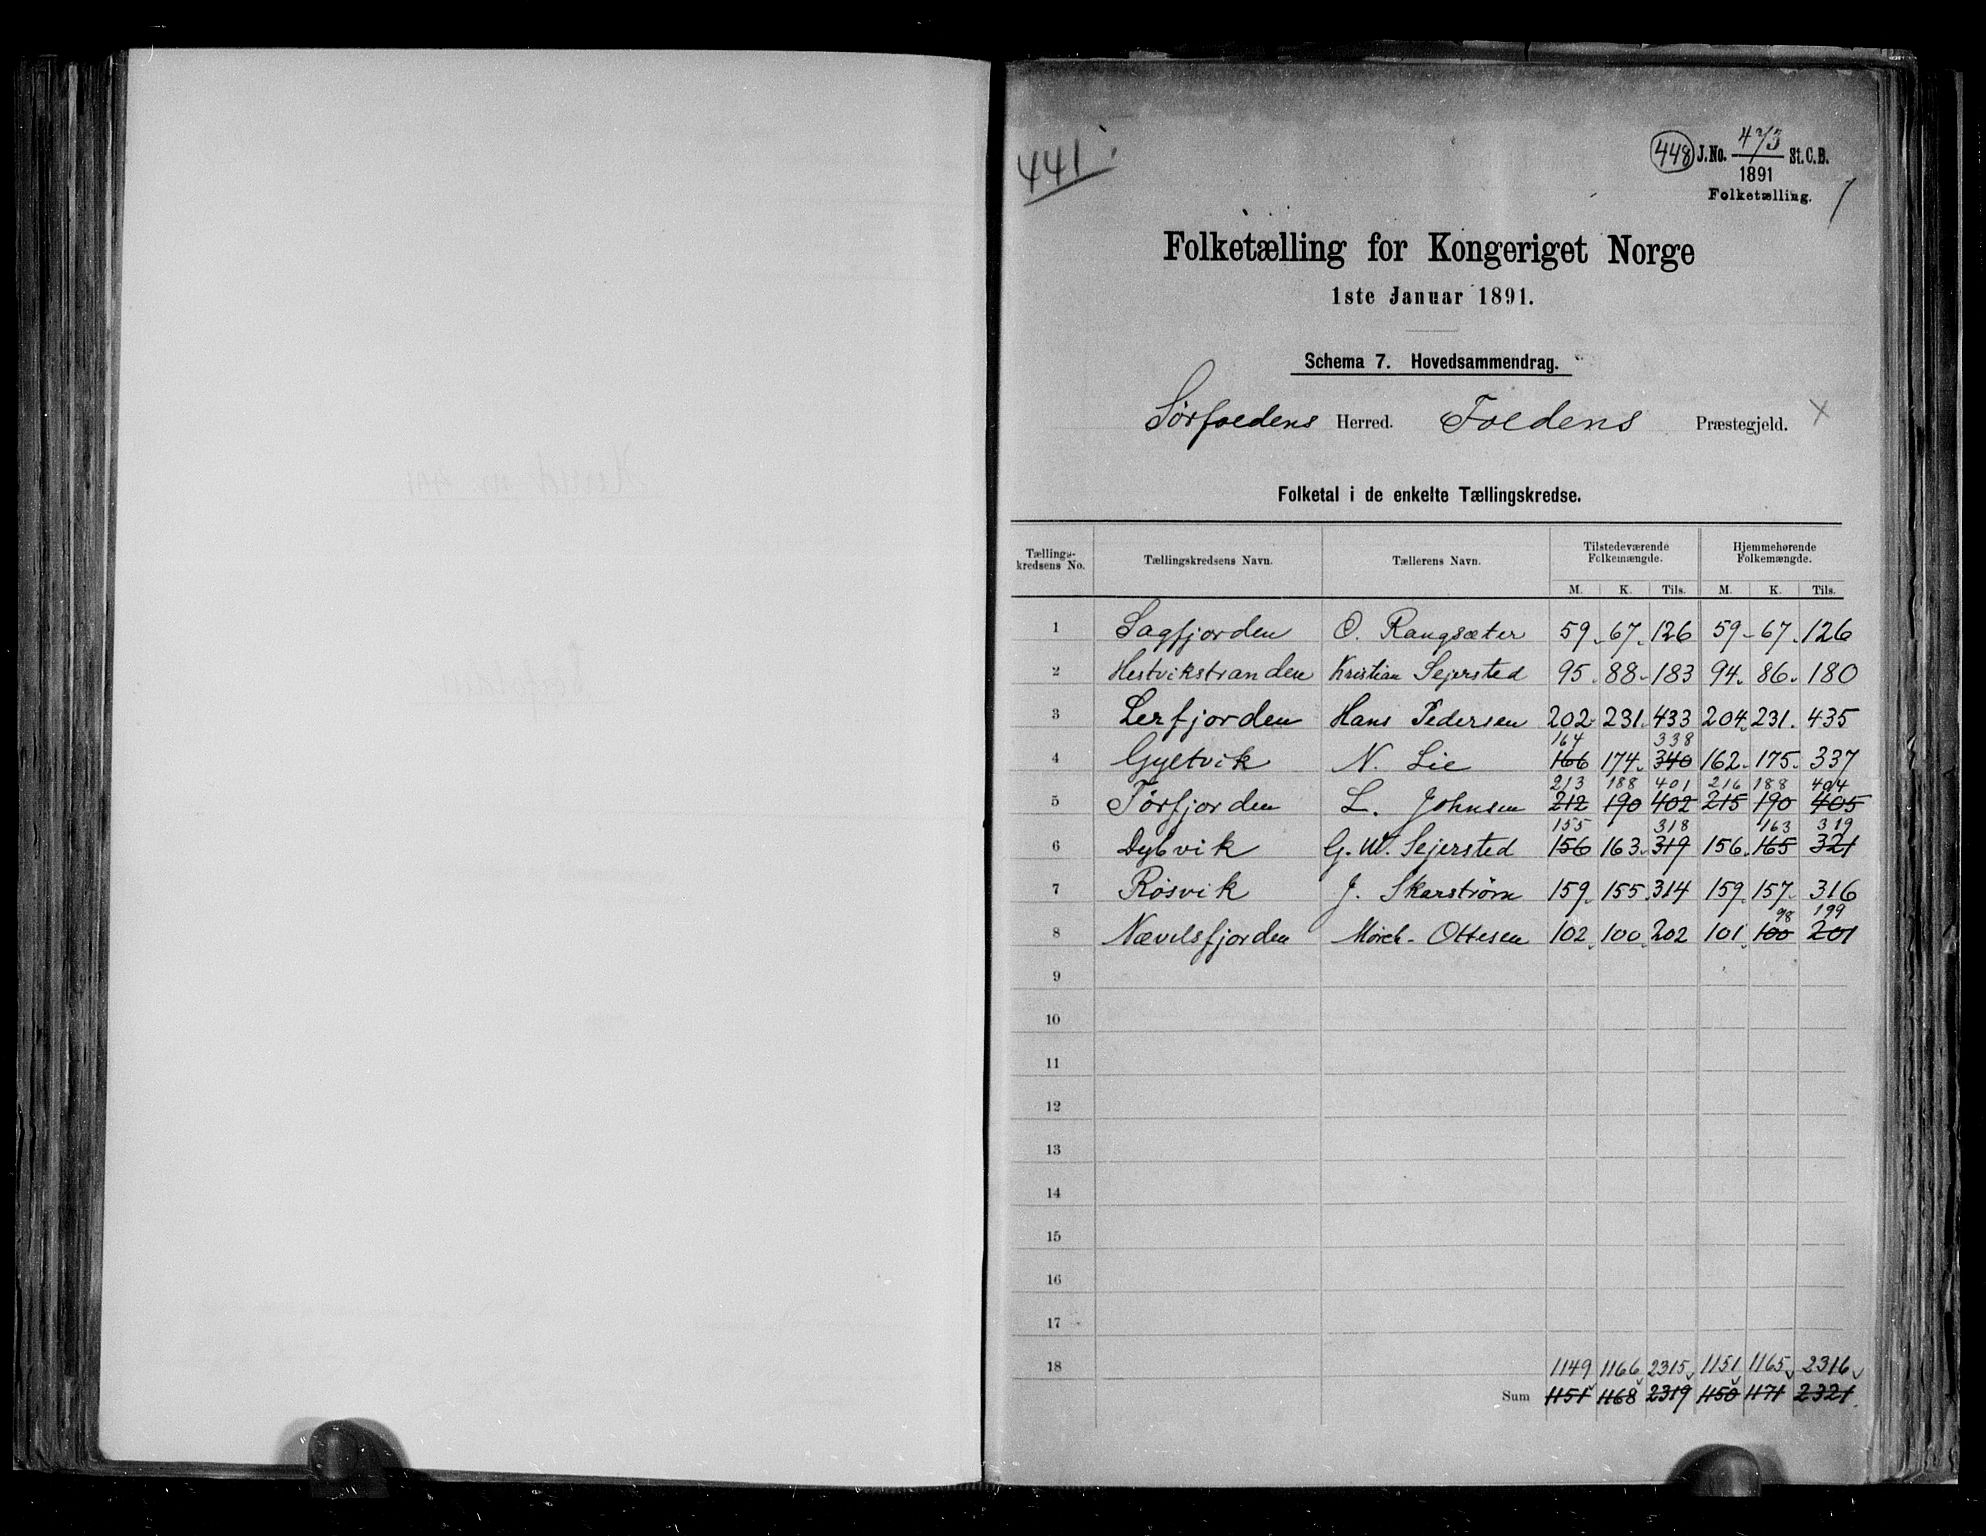 441
448 J.No. 473/1891 St.C.B.
Folketælling.
Folketælling for Kongeriget Norge
1ste Januar 1891.
Schema 7. Hovedsammendrag.
Sørfoldens Herred. Foldens Præstegjeld.
Folketal i de enkelte Tællingskredse.
Tællings-kredsens No. Tællingskredsens Navn. Tællerens Navn. Tilstedeværende Folkemængde. Hjemmehørende Folkemængde.
M. K. Tils. M. K. Tils.
1 Sagfjorden O. Rangsæter 59 67 126 59 67 126
2 Hestvikstranden Kristian Sejersted 95 88 183 94 86 180
3 Lerfjorden Hans Pedersen 202 231 433 204 231 435
164 338
4 Gyltvik N. Lie 166 174 340 162 175 337
213 188 401 216 188 404
5 Tørfjorden L. Johnsen 212 190 402 215 190 405
155 318 163 319
6 Dybvik G. W. Sejersted 156 163 319 156 165 321
7 Røsvik J. Skarstrøm 159 155 314 159 157 316
98 199
8 Nævelsfjorden Mørch-Ottesen 102 100 202 101 100 201
9
10
11
12
13
14
15
16
17
18 1149 1166 2315 1151 1165 2316
Sum 1151 1168 2319 1150 1171 2321